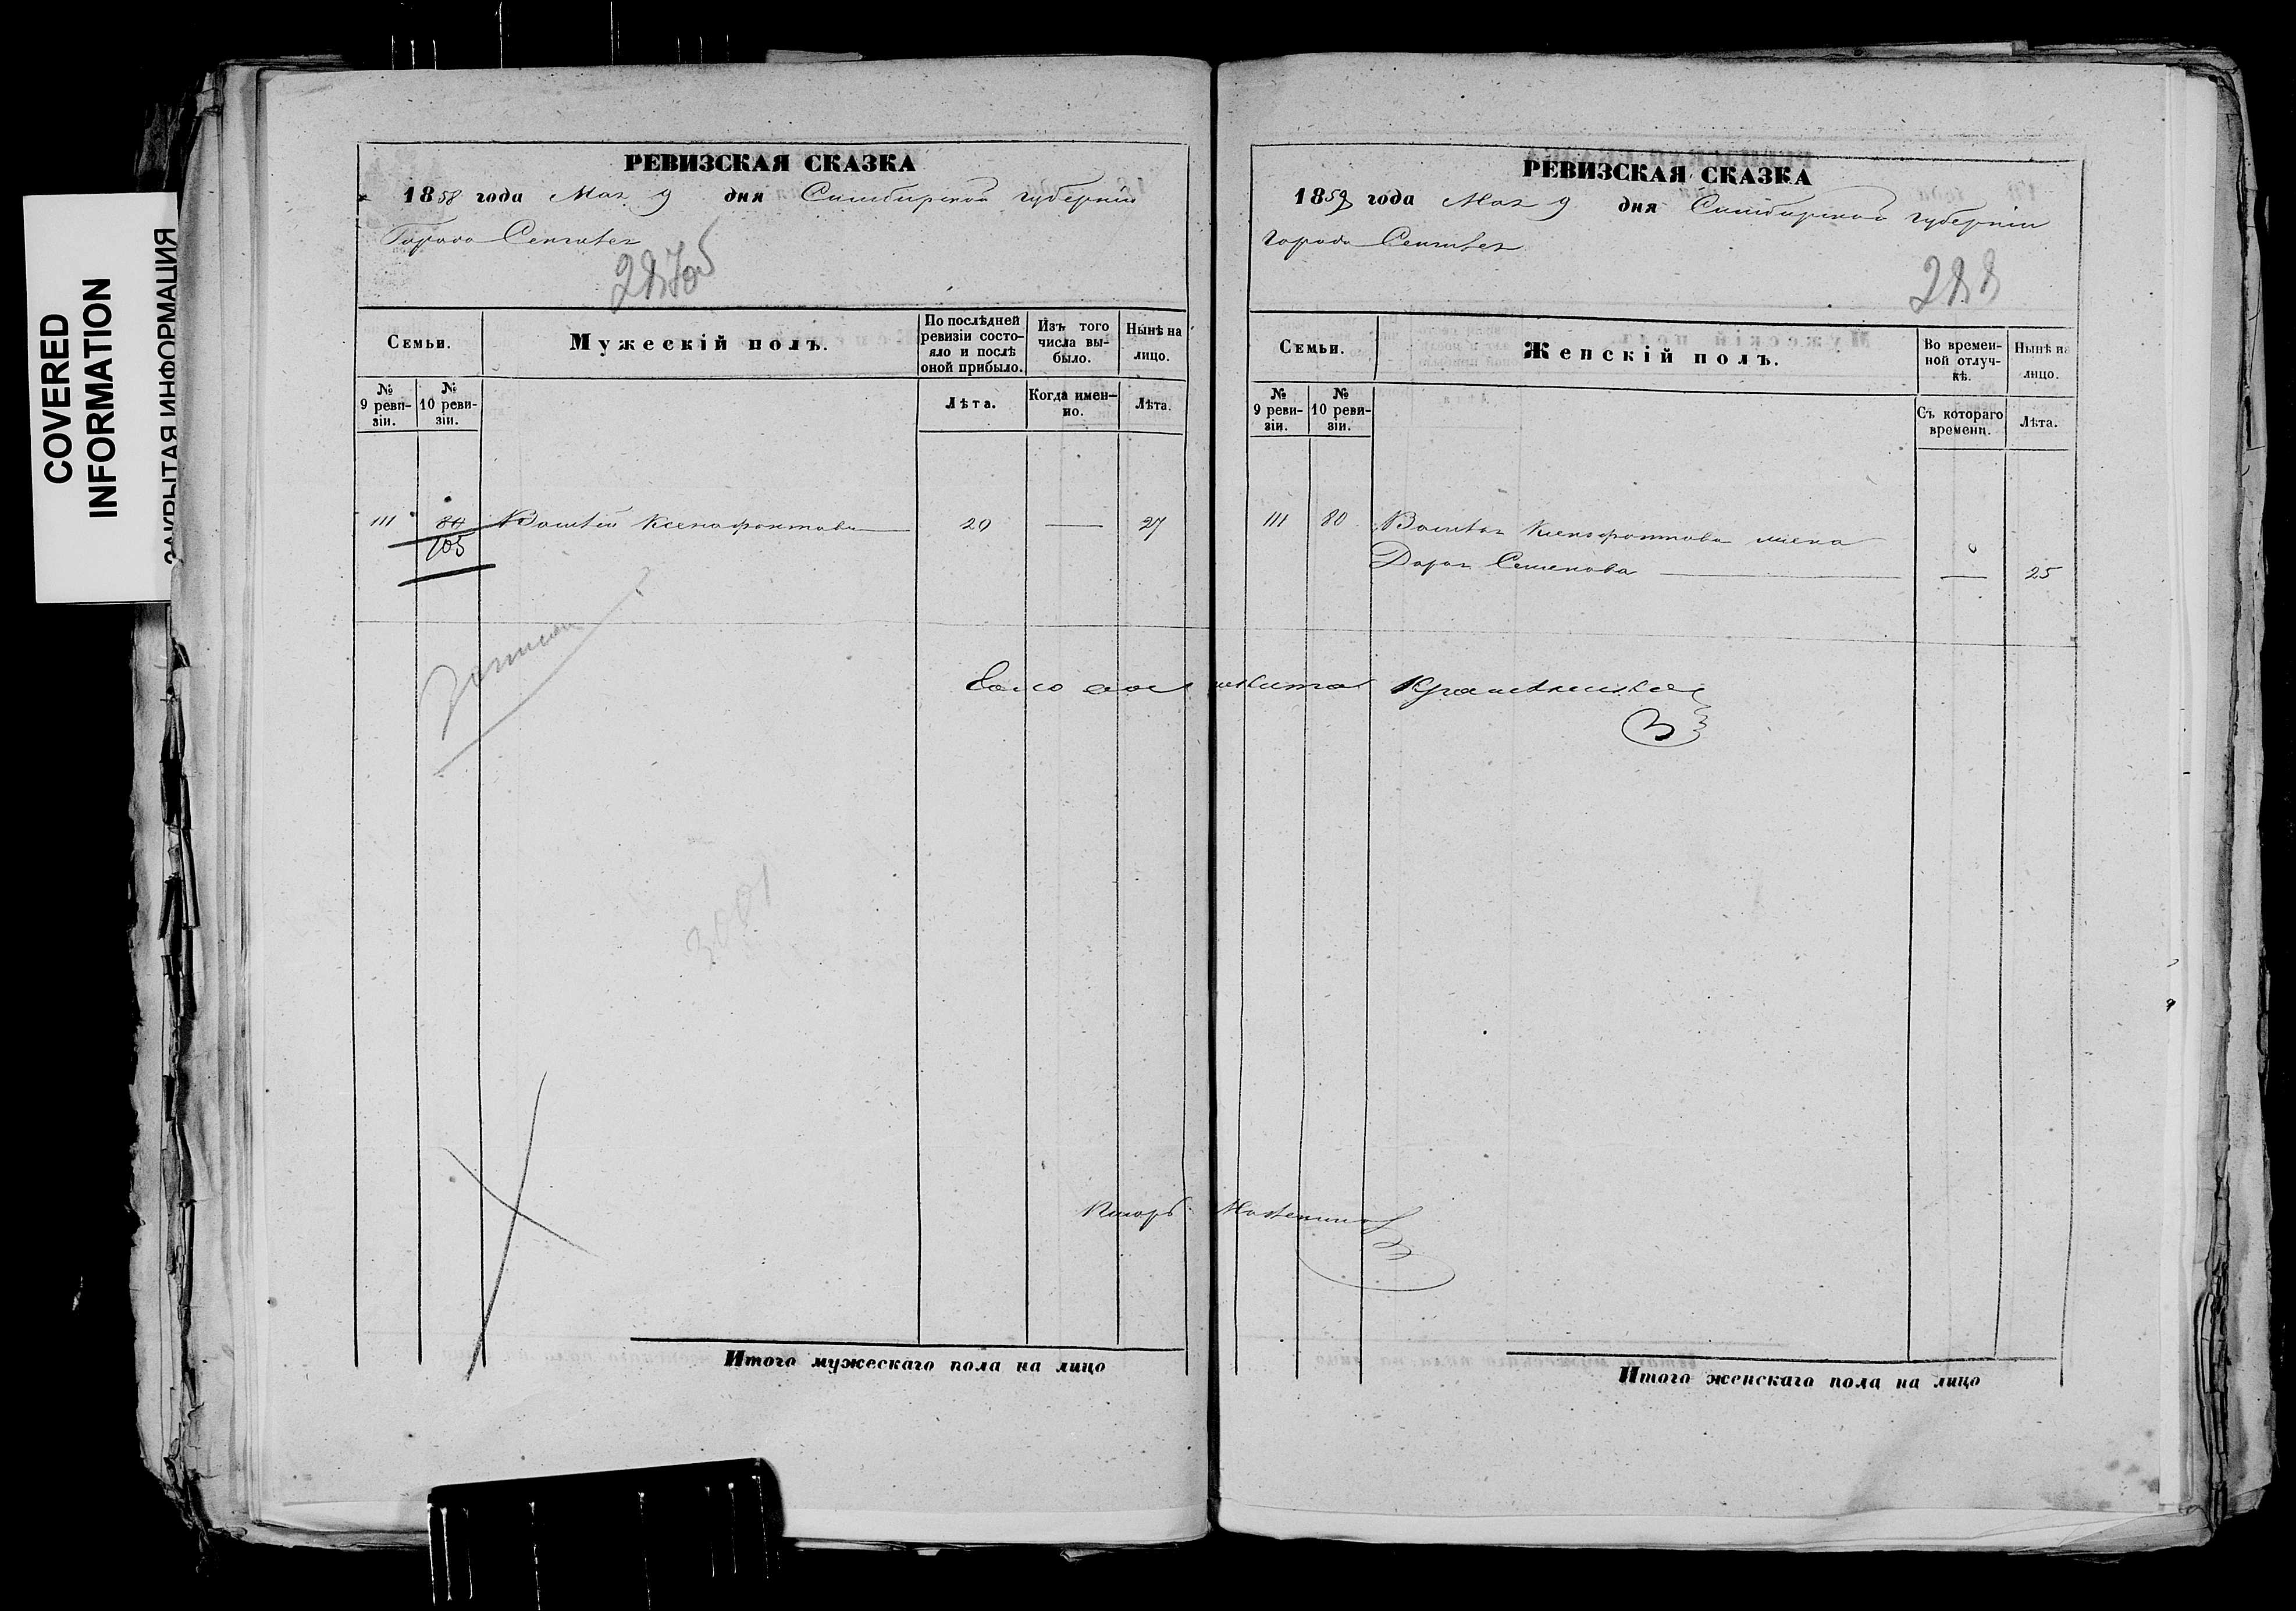 COVERED
INFORMATION
ЗАКРЫТАЯ ИНФОРМАЦИЯ
РЕВИЗСКАЯ СКАЗКА
1858 года Мая 9 дня Симбирской губерніи
Города Сенгилея
287об
Семьи.
Мужескій полъ.
По послѣдней ревизіи состояло и послѣ оной прибыло.
Изъ того числа выбыло.
Нынѣ на лицо.
№ 9 ревизіи.
№ 10 ревизіи.
Лѣта.
Когда именно.
Лѣта.
111 80 Ксенофонтовъ 20 — 27
105
3001
Итого мужескаго пола на лицо
РЕВИЗСКАЯ СКАЗКА
1858 года Мая 9 дня Симбирской губерніи
города Сенгилея
288
Семьи.
Женскій полъ.
Во временной отлучкѣ.
Нынѣ на лицо.
№ 9 ревизіи.
№ 10 ревизіи.
Съ котораго времени.
Лѣта.
111 80 Ксенофонтова жена
Дарья Семенова — 25
Писарь
Итого женскаго пола на лицо